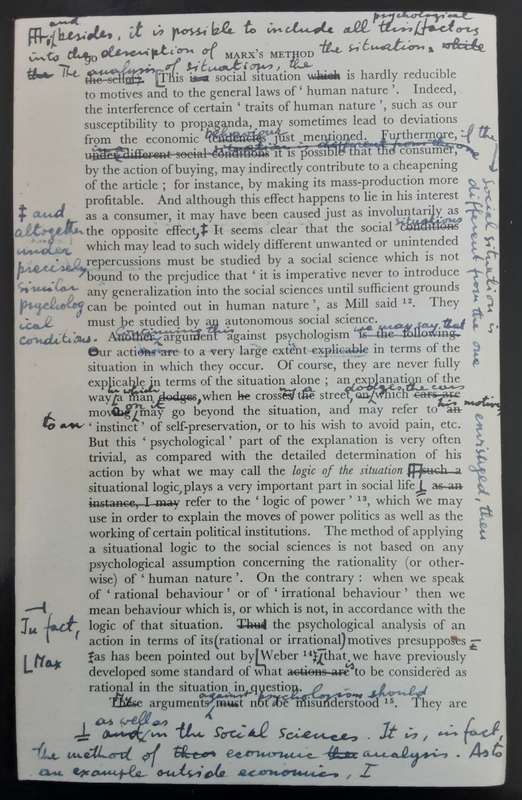 and psychological
, besides, it is possible to include all this factors
into the description of MARX'S METHOD the situation, while
the The analysis of situations, the
the selfish This is a social situation which is hardly reducible
to motives and to the general laws of ' human nature '. Indeed,
the interference of certain ' traits of human nature ', such as our
susceptibility to propaganda, may sometimes lead to deviations
from the economic behaviour tendencies just mentioned. Furthermore, if the
under different social conditions situation is different from the one it is possible that the consumer,
by the action of buying, may indirectly contribute to a cheapening
of the article ; for instance, by making its mass-production more
profitable. And although this effect happens to lie in his interest
as a consumer, it may have been caused just as involuntarily as
the opposite effect, ‡ It seems clear that the social situations conditions
which may lead to such widely different unwanted or unintended
repercussions must be studied by a social science which is not
bound to the prejudice that ' it is imperative never to introduce
any generalization into the social sciences until sufficient grounds
can be pointed out in human nature ', as Mill said 12. They
must be studied by an autonomous social science.
‡ and
altogether
under
precisely
similar
psycholog
ical
conditions.
social situation is
different from the one
envisaged, then
Continuing this we may say that
Another argument against psychologism is the following.
Our actions are to a very large extent explicable in terms of the
situation in which they occur. Of course, they are never fully
explicable in terms of the situation alone ; an explanation of the
in which dodges the cars
way a man dodges, when he crosses the street, on which cars are
on it his motives,
moving, may go beyond the situation, and may refer to an
to an ' instinct ' of self-preservation, or to his wish to avoid pain, etc.
But this ' psychological ' part of the explanation is very often
trivial, as compared with the detailed determination of his
action by what we may call the logic of the situation such a
situational logic, plays a very important part in social life as an
instance, I may refer to the ' logic of power ' 13, which we may
use in order to explain the moves of power politics as well as the
working of certain political institutions. The method of applying
a situational logic to the social sciences is not based on any
psychological assumption concerning the rationality (or other-
wise) of ' human nature '. On the contrary : when we speak
of ' rational behaviour ' or of ' irrational behaviour ' then we
mean behaviour which is, or which is not, in accordance with the
logic of that situation. Thus the psychological analysis of an
In fact,
action in terms of its (rational or irrational) motives presupposes
Max as has been pointed out by Weber 14 that we have previously
developed some standard of what actions are is to be considered as
rational in the situation in question.
My against psychologism should
These arguments must not be misunderstood 15. They are
as well as
and in the social sciences. It is, in fact,
the method of economic the analysis. As to
an example outside economics, I